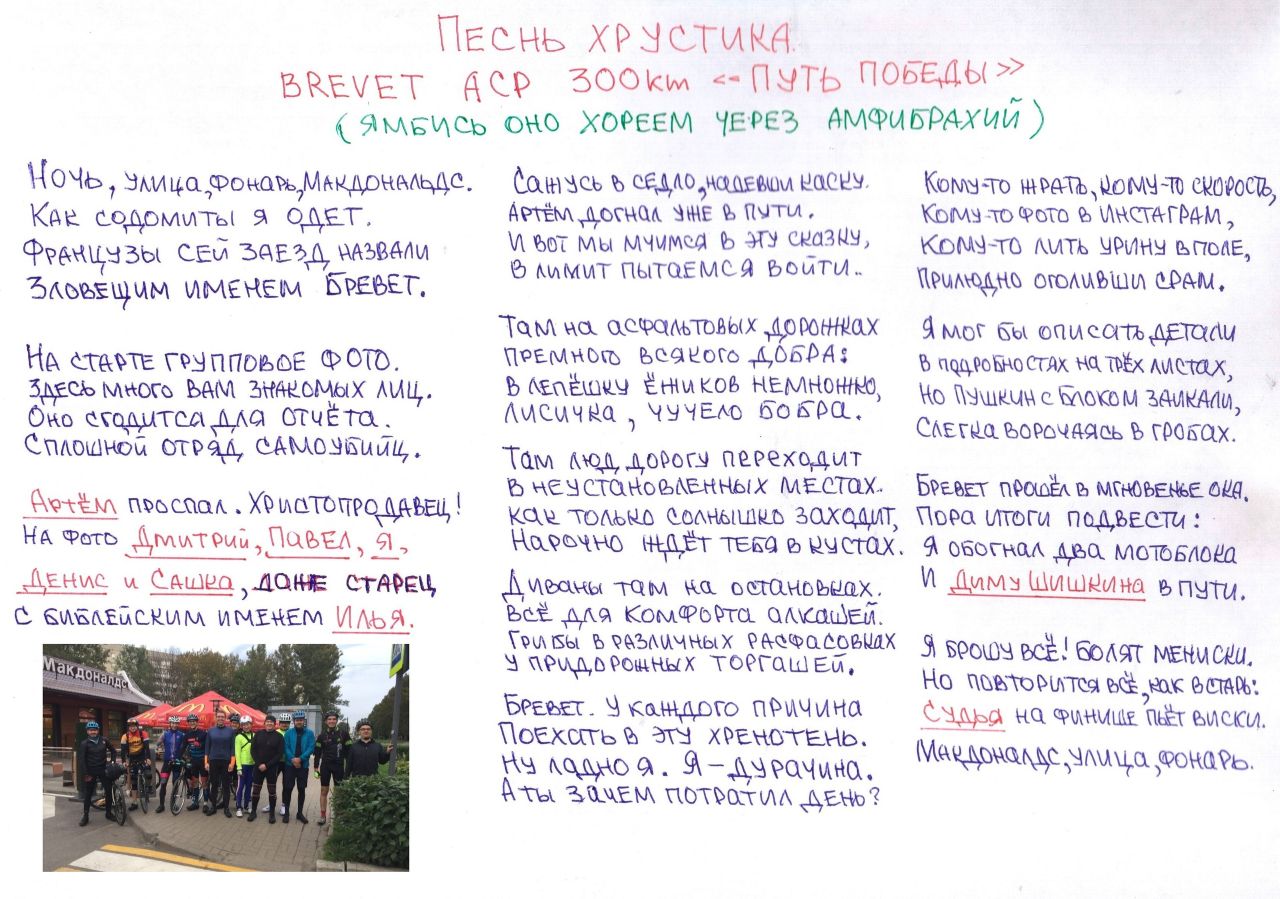 ПЕСНЬ ХРУСТИКА.
BREVET ACP 300km <-ПУТЬ ПОБЕДЫ>>
(ЯМБИСЬ ОНО ХОРЕЕМ ЧЕРЕЗ АМФИБРАХИЙ)
НОЧЬ, УЛИЦА, ФОНАРЬ, МАКДОНАЛЬДС.
КАК СОДОМИТЫ Я ОДЕТ.
ФРАНЦУЗЫ СЕЙ ЗАЕЗД НАЗВАЛИ
ЗЛОВЕЩИМ ИМЕНЕМ БРЕВЕТ.
НА СТАРТЕ ГРУППОВОЕ ФОТО.
ЗДЕСЬ МНОГО ВАМ ЗНАКОМЫХ ЛИЦ.
ОНО СГОДИТСЯ ДЛЯ ОТЧЁТА.
СПЛОШНОЙ ОТРЯД САМОУБИЙЦ.
АРТЁМ ПРОСПАЛ. ХРИСТОПРОДАВЕЦ!
НА ФОТО ДМИТРИЙ, ПАВЕЛ, Я,
ДЕНИС И САШКА, ДАЖЕ СТАРЕЦ
С БИБЛЕЙСКИМ ИМЕНЕМ ИЛЬЯ.
Макдоналдс
САЖУСЬ В СЕДЛО, НАДЕВШИ КАСКУ.
АРТЁМ ДОГНАЛ УЖЕ В ПУТИ.
И ВОТ МЫ МЧИМСЯ В ЭТУ СКАЗКУ,
В ЛИМИТ ПЫТАЕМСЯ ВОЙТИ..
ТАМ НА АСФАЛЬТОВЫХ ДОРОЖКАХ
ПРЕМНОГО ВСЯКОГО ДОБРА:
В ЛЕПЁШКУ ЁЖИКОВ НЕМНОЖКО,
ЛИСИЧКА, ЧУЧЕЛО БОБРА.
ТАМ ЛЮД ДОРОГУ ПЕРЕХОДИТ
В НЕУСТАНОВЛЕННЫХ МЕСТАХ.
КАК ТОЛЬКО СОЛНЫШКО ЗАХОДИТ,
НАРОЧНО ЖДЁТ ТЕБЯ В КУСТАХ.
ДИВАНЫ ТАМ НА ОСТАНОВКАХ.
ВСЁ ДЛЯ КОМФОРТА АЛКАШЕЙ.
ГРИБЫ В РАЗЛИЧНЫХ РАСФАСОВКАХ
У ПРИДОРОЖНЫХ ТОРГАШЕЙ.
БРЕВЕТ. У КАЖДОГО ПРИЧИНА
ПОЕХАТЬ В ЭТУ ХРЕНОТЕНЬ.
НУ ЛАДНО Я. Я - ДУРАЧИНА.
А ТЫ ЗАЧЕМ ПОТРАТИЛ ДЕНЬ?
КОМУ-ТО ЖРАТЬ, КОМУ-ТО СКОРОСТЬ,
КОМУ-ТО ФОТО В ИНСТАГРАМ,
КОМУ-ТО ЛИТЬ УРИНУ В ПОЛЕ,
ПРИЛЮДНО ОГОЛИВШИ СРАМ.
Я МОГ БЫ ОПИСАТЬ ДЕТАЛИ
В ПОДРОБНОСТЯХ НА ТРЁХ ЛИСТАХ,
НО ПУШКИН С БЛОКОМ ЗАИКАЛИ,
СЛЕГКА ВОРОЧАЯСЬ В ГРОБАХ.
БРЕВЕТ ПРОШЁЛ В МГНОВЕНЬЕ ОКА.
ПОРА ИТОГИ ПОДВЕСТИ:
Я ОБОГНАЛ ДВА МОТОБЛОКА
И ДИМУ ШИШКИНА В ПУТИ.
Я БРОШУ ВСЁ! БОЛЯТ МЕНИСКИ.
НО ПОВТОРИТСЯ ВСЁ, КАК ВСТАРЬ:
СУДЬЯ НА ФИНИШЕ ПЬЁТ ВИСКИ.
МАКДОНАЛДС, УЛИЦА, ФОНАРЬ.